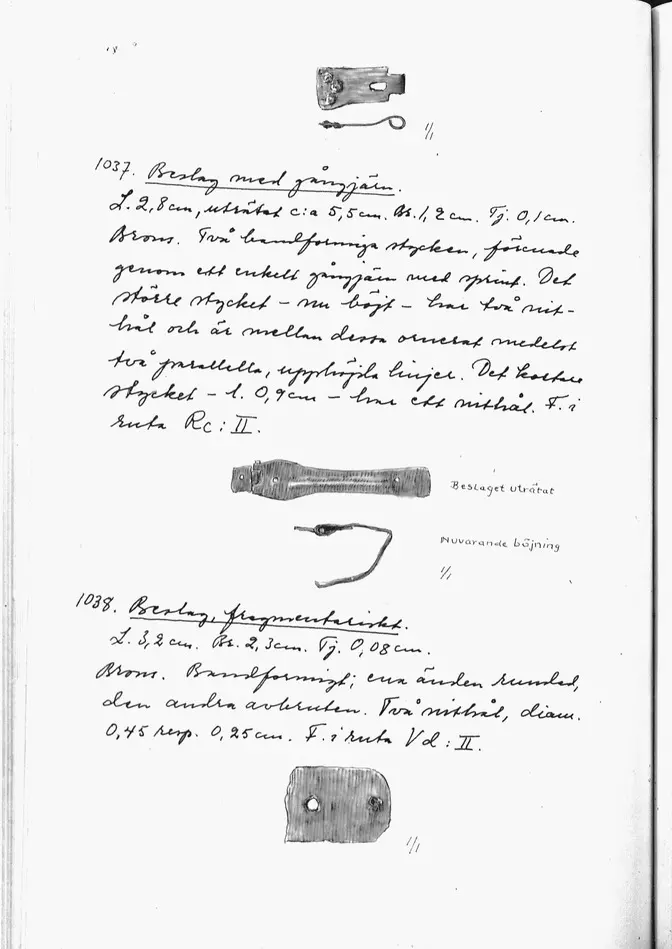 1/1
1037. Beslag med gångjärn.
L. 2,8 cm, uträtat c:a 5,5 cm. Br. 1,2 cm. Tj. 0,1 cm.
Brons. Två bandformiga stycken, förenade
genom ett enkelt gångjärn med sprint. Det
större stycket – nu böjt – har två nit-
hål och är mellan dessa ornerat medelst
två parallella, upphöjda linjer. Det kortare
stycket – l. 0,9 cm – har ett nithål. F. i
ruta Rc : II.
Beslaget uträtat
Nuvarande böjning
1/1
1038. Beslag, fragmentariskt.
L. 3,2 cm. Br. 2,3 cm. Tj. 0,08 cm.
Brons. Bandformigt; ena änden rundad,
den andra avbruten. Två nithål, diam.
0,45 resp. 0,25 cm. F. i ruta Vd : II.
1/1